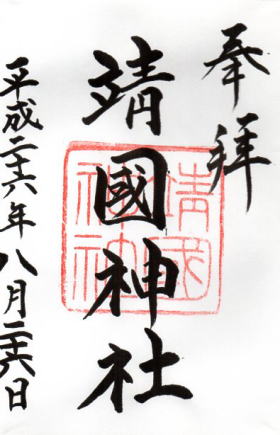 奉拝
靖國神社
靖國神社
平成二十六年八月二十六日